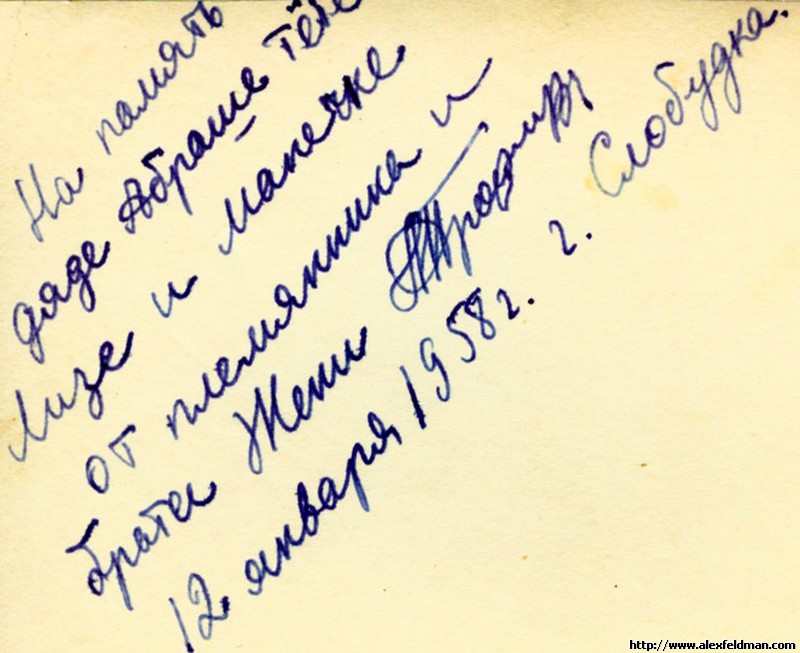 На память
дяде Абраше тёте
Лизе и Манечке
от племянника и
брата Жени
12 января 1958 г. г. Слобудка.
http://www.alexfeldman.com